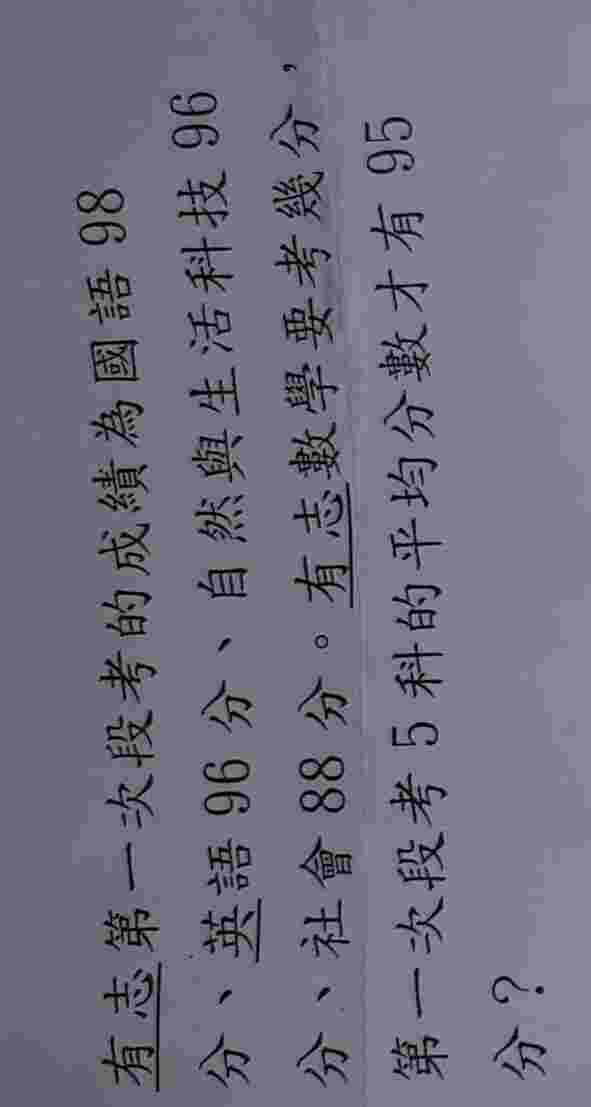 有志第一次段考的成績為國語 98
分、英語 96 分、自然與生活科技 96
分、社會 88 分。有志數學要考幾分，
第一次段考 5 科的平均分數才有 95
分?